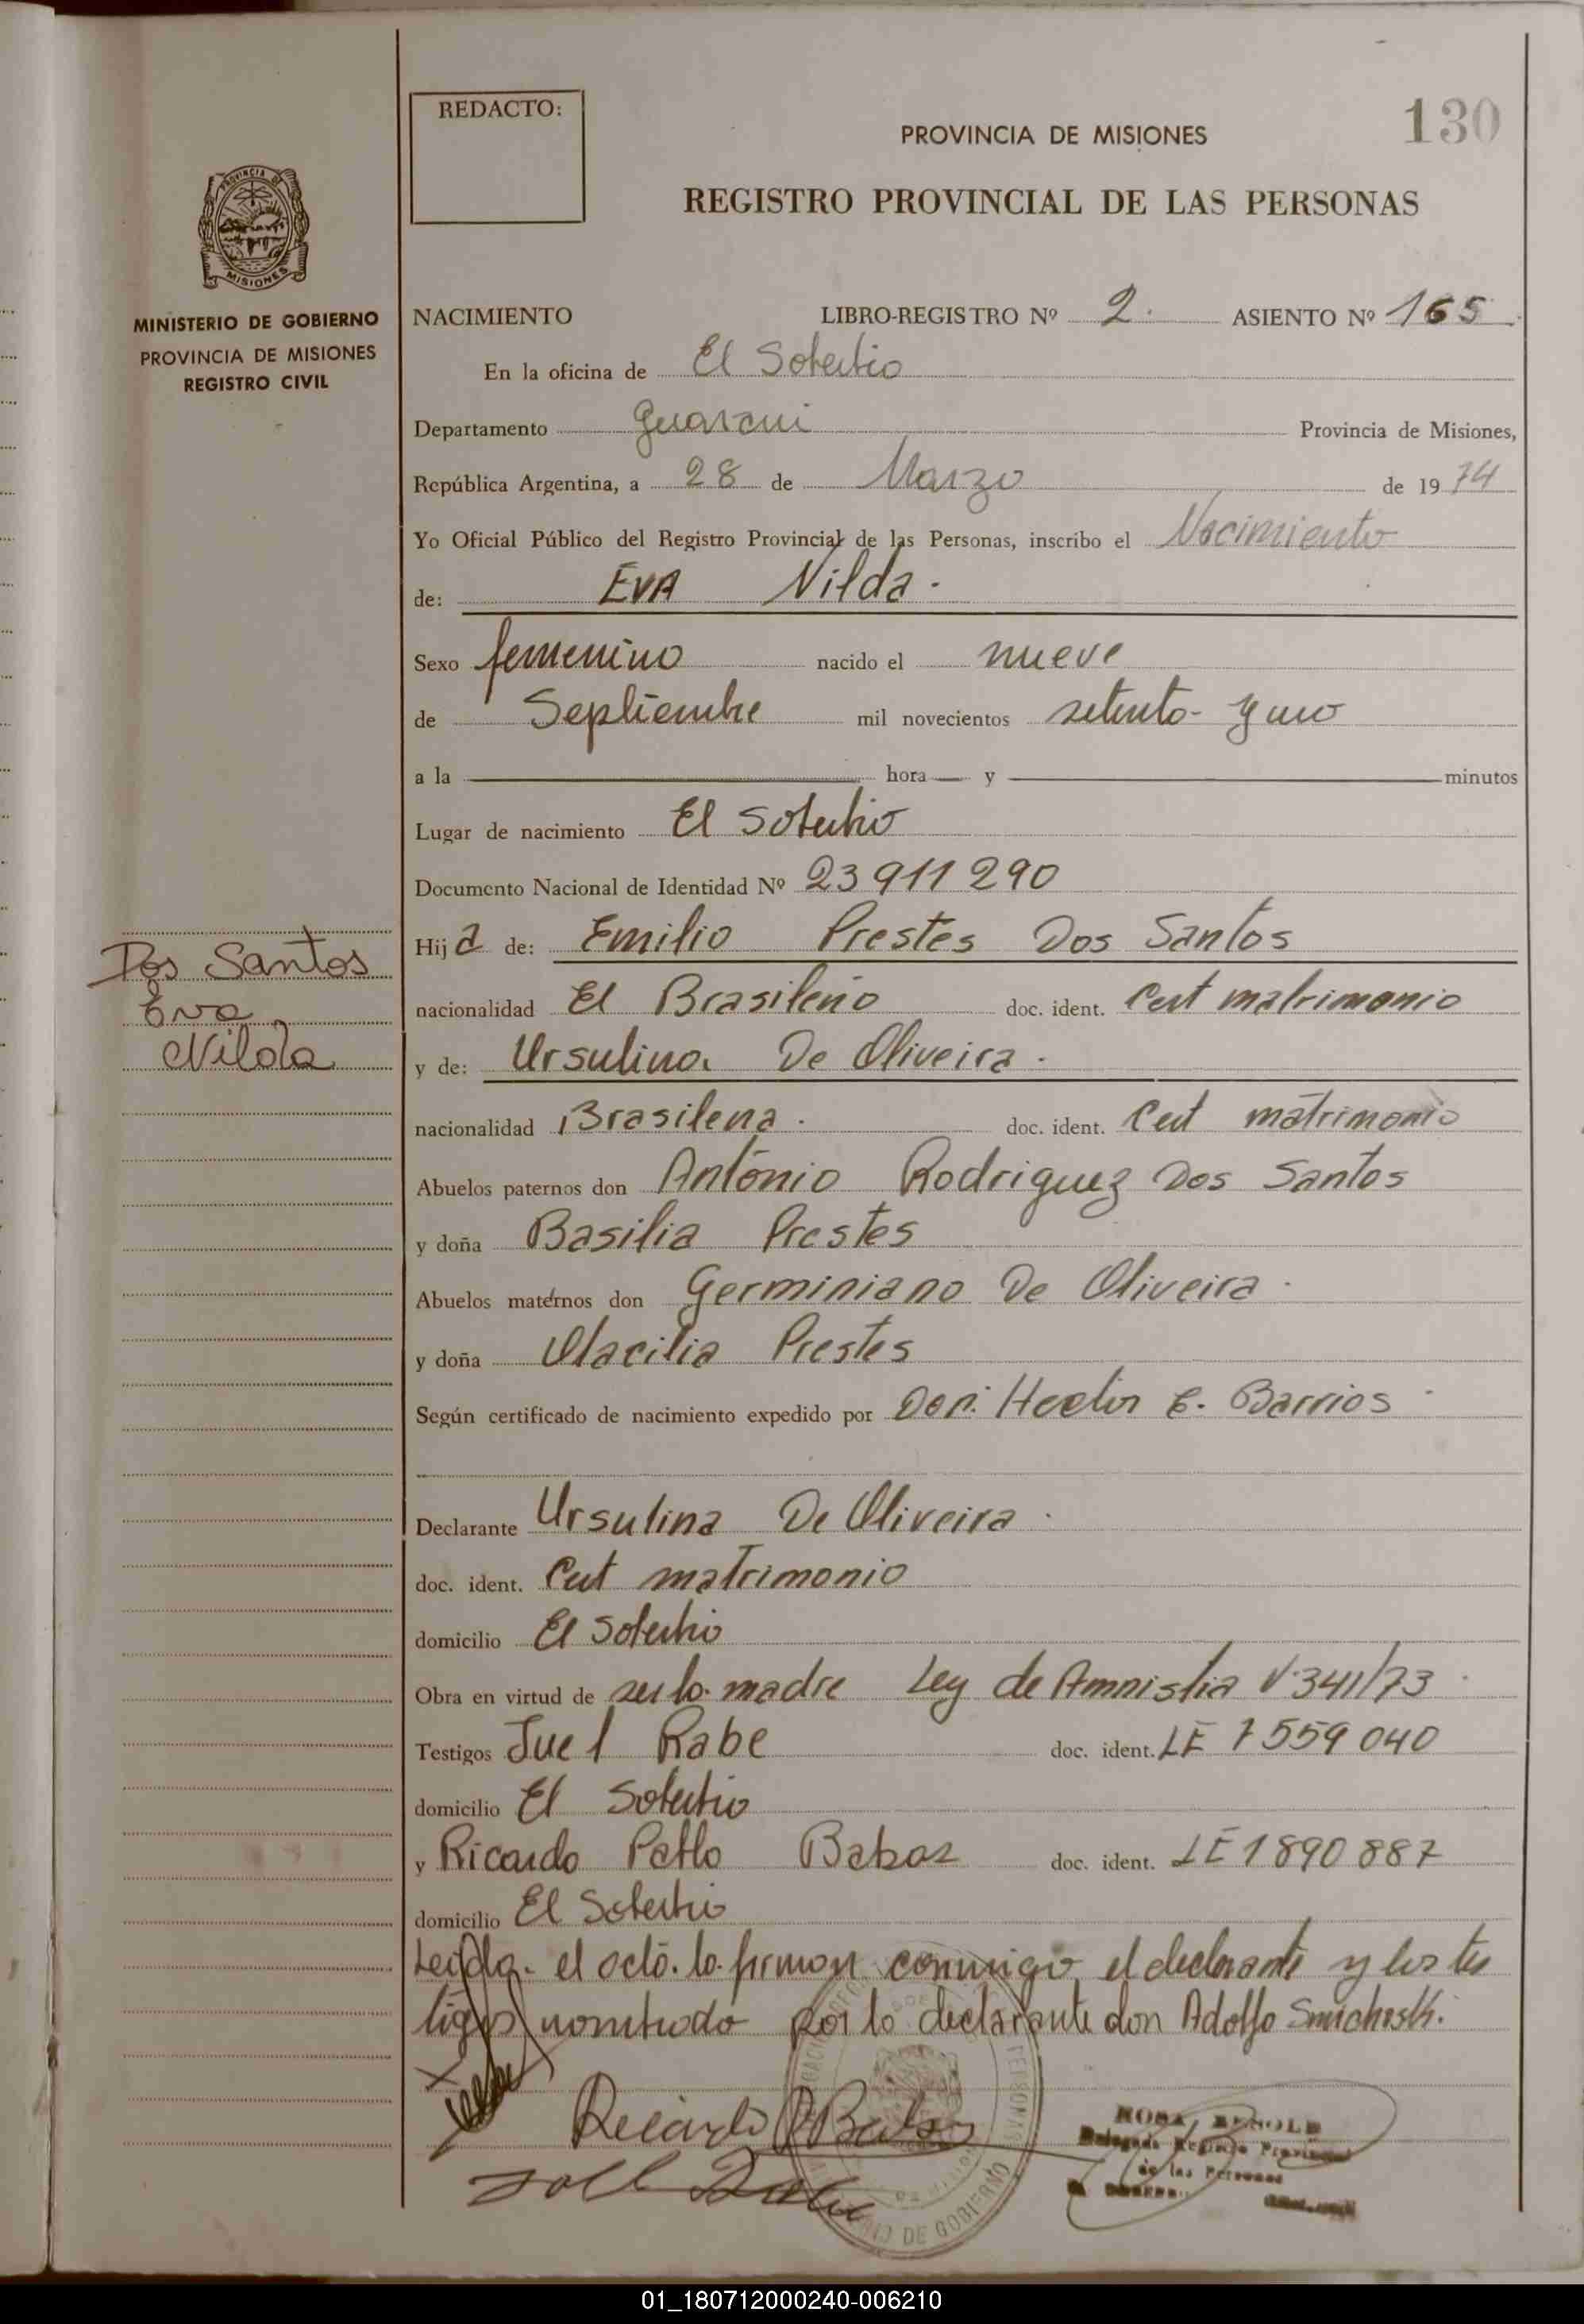 REDACTO:
130
PROVINCIA DE MISIONES
REGISTRO PROVINCIAL DE LAS PERSONAS
PROVINCIA DE
MISIONES
MINISTERIO DE GOBIERNO
PROVINCIA DE MISIONES
REGISTRO CIVIL
NACIMIENTO LIBRO-REGISTRO Nº 2. ASIENTO Nº 165
En la oficina de El Soberbio
Departamento Guarani Provincia de Misiones,
República Argentina, a 28 de Marzo de 1974
Yo Oficial Público del Registro Provincial de las Personas, inscribo el Nacimiento
de: EVA Nilda.
Sexo femenino nacido el nueve
de Septiembre mil novecientos setenta y uno
a la hora y minutos
Lugar de nacimiento El Soberbio
Documento Nacional de Identidad Nº 23 911 290
Hija de: Emilio Prestes Dos Santos
Dos Santos
Eva
Nilda
nacionalidad El Brasileño doc. ident. Cert matrimonio
y de: Ursulina De Oliveira.
nacionalidad Brasilena. doc. ident. Cert matrimonio
Abuelos paternos don António Rodriguez Dos Santos
y doña Basilia Prestes
Abuelos maternos don Germiniano De Oliveira.
y doña Prestes
Según certificado de nacimiento expedido por Hector E. Barrios
Declarante Ursulina De Oliveira.
doc. ident. Cert matrimonio
domicilio El Soberbio
Obra en virtud de ser la madre Ley de Amnistia 341/73
Testigos Juel Rabe doc. ident. LE 7559 040
domicilio El Soberbio
y Ricardo Pablo doc. ident. LE 1890 887
domicilio El Soberbio
Leida el acta la firman conmigo, el declarante y los tes
tigos nombrado por la declarante don Adolfo
Ricardo
ROSA
Delegada Registro Provincial
de las Personas
DE GOBIERNO
01_180712000240-006210